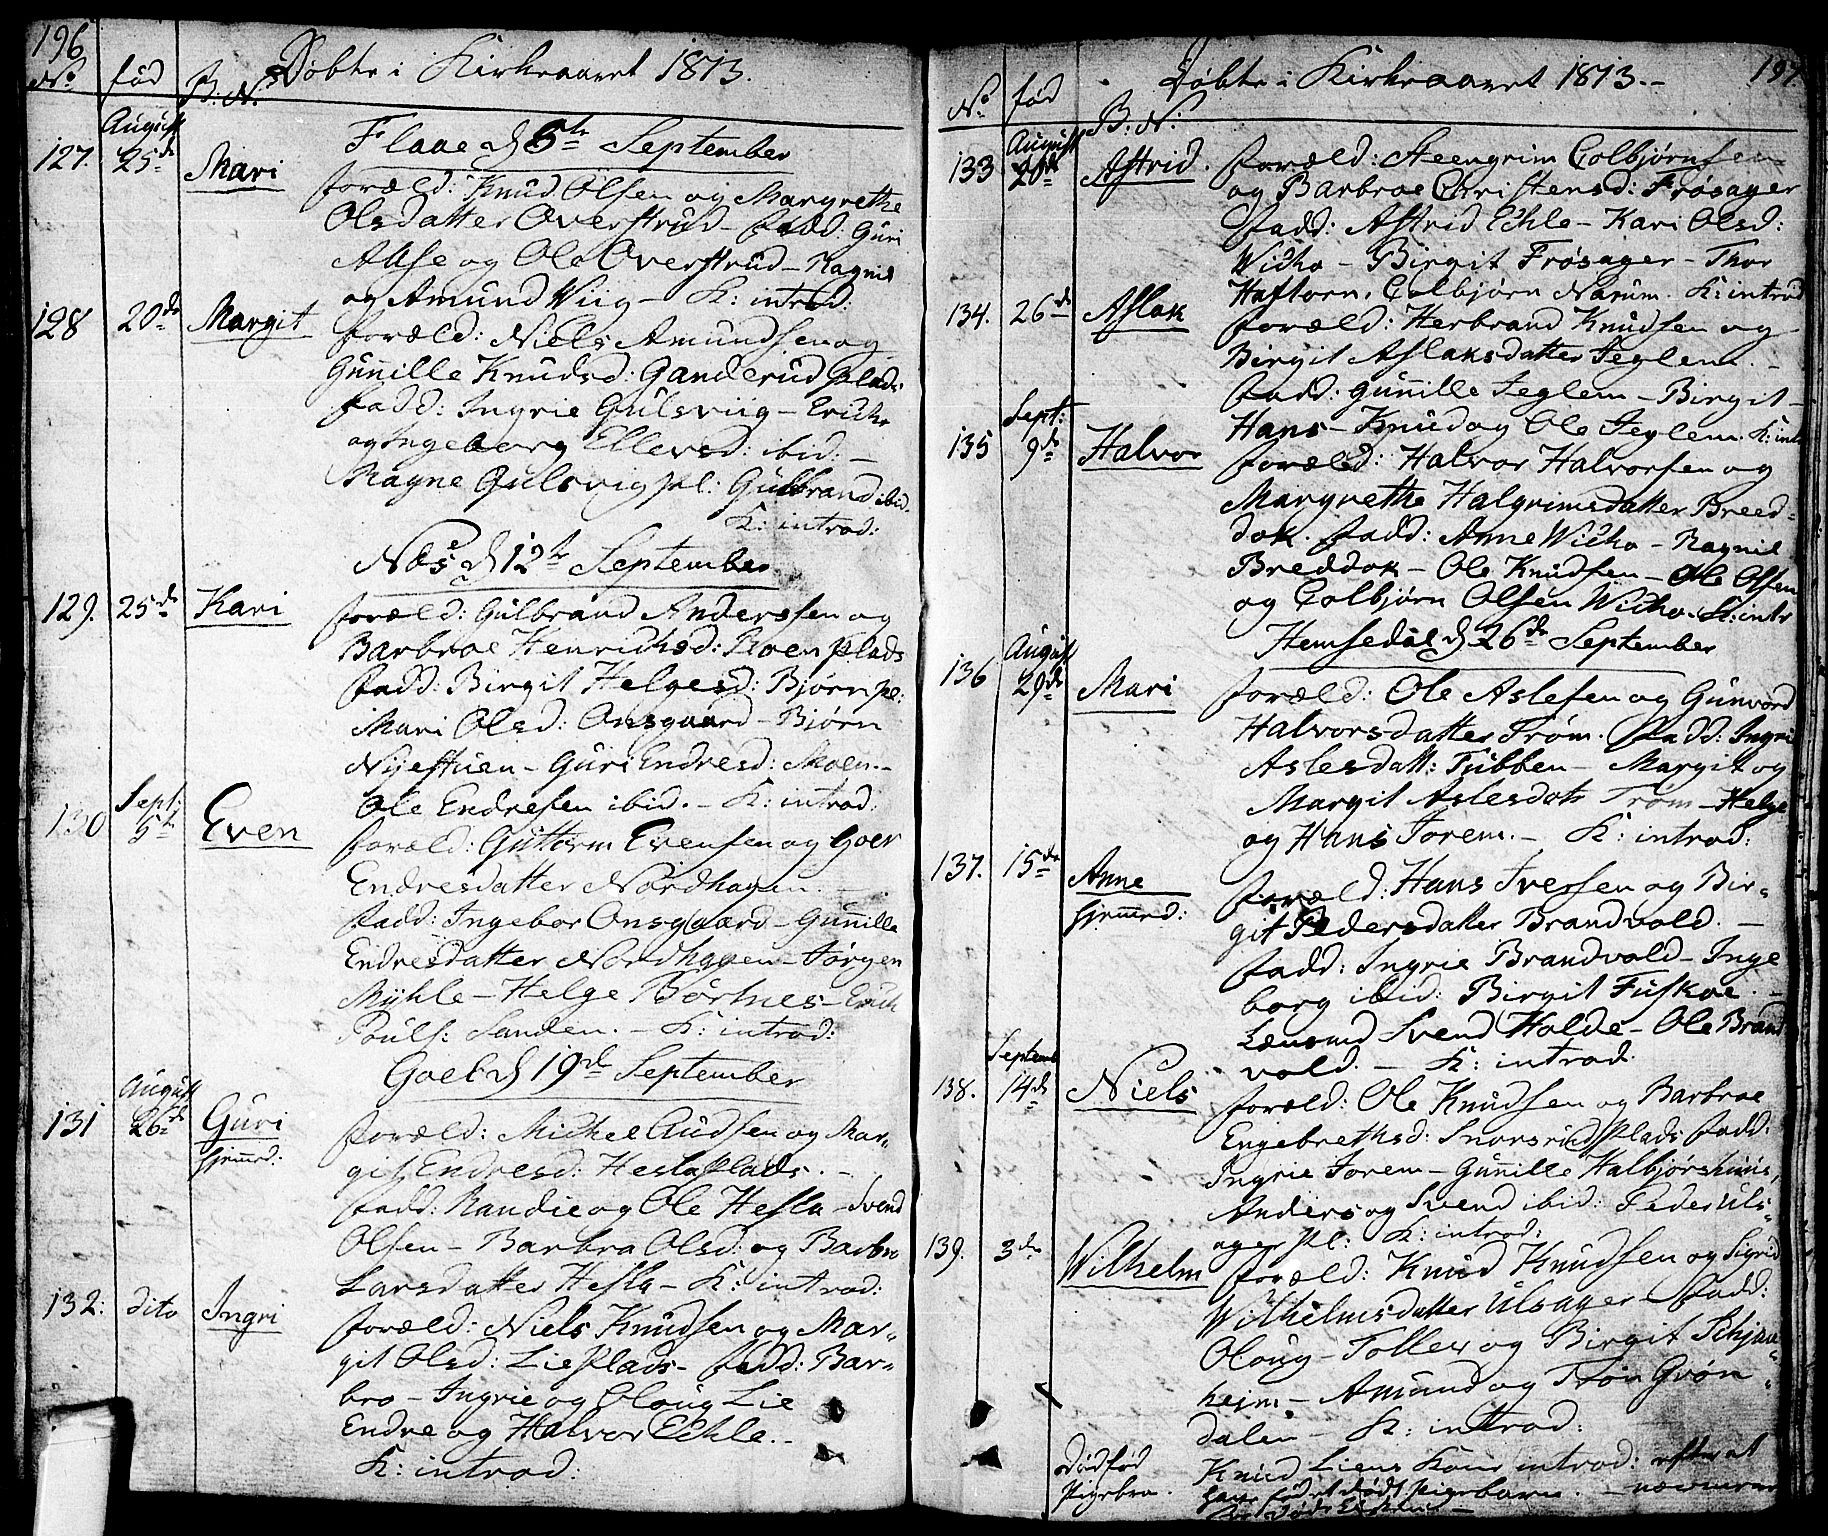 196
Døbte i Kirkeaaret 1813.
No fød B: N:
Flaae d 5te September
127. August 25de Mari
foræld: Knud Olsen og Margrethe
Olsdatter Overstrud - fadd: Guri
Aase og Ole Overstrud - Ragnil
og Amund Wiig - K: introd:
128 20de Margit
foræld: Niels Amundsen og
Gunille Knudsd: Ganderud Plads
fadd: Ingrie Gulsviig - Erich
og Ingeborg Ellevsd: ibid: -
Magne Gulsvig pl: Gulbrand ibid.
K: introd:
Næs d 12te September
129. 25de Kari
foræld: Gulbrand Anderssen og
Barbroe Henrichsd: Roen Plads
fadd: Birgit Helgesd: Bjørn pl:
Mari Olsd: Onsgaard - Bjørn
Nyestuen - Guri Endresd: Moen -
Ole Endresen ibid. - K: introd:
130 Sept: 5te Even
foræld: Guttorm Evensen og Goer
Endresdatter Nordhagen. -
fadd: Ingebor Onsgaard - Gunille
Endresdatter Nordhagen - Jørgen
Myhle - Helge Børtnes - Erich
Pouls: Sanden. - K: introd:
Goel d 19de September
131 August 26de Guri
hjemmed:
foræld: Michel Audsen og Mar-
git Endresd: Hesla Plads. -
fadd: Randie og Ole Hesla - Svend
Olsen - Barbra Olsd: og Barbro
Larsdatter Hesla - K: introd:
132: dito Ingri
foræld: Niels Knudsen og Mar-
git Olsd: Lie Plads - fadd: Bar-
bro - Ingrie og Oloug Lie
Endre og Halvor Echle. -
K: introd:
197.
Døbte i Kirkeaaret 1813. -
No fød B: N:
133 August 20de Astrid.
foræld: Steengrim Colbjørnsen
og Barbroe Christensd: Frøsager
fadd: Astrid Echle - Kari Olsd:
Wicho - Birgit Frøsager - Thor
Haftorn, Colbjørn Narum. K: introd
134. 26de Aslak
foræld: Herbrand Knudsen og
Birgit Aslaksdatter Jeglem. -
fadd: Gunille Jeglem - Birgit -
Hans - Knud og Ole Jeglem. K: int
135 Sept: 9de Halvor
foræld: Halvor Halvorsen og
Margrethe Halgrimsdatter Breed-
dok. fadd: Anne Wicho - Ragnil
Breddok - Ole Knudsen - Ole Olsen
og Colbjørn Olsen Wicho. K: intr
Hemsedal d 26de September
136 August 29de Mari
foræld: Ole Aslesen og Gunvord
Halvorsdatter Trøm. fadd: Ingri
Aslesdatt: Tubben - Margit og
Margit Aslesdotr Trøm - Helge
og Hans Torem. - K: introd:
137. 15de Anne
hjemmed:
foræld: Hans Iversen og Bir-
git Pedersdatter Brandvold. -
fadd: Ingrie Brandvold - Inge
borg ibid: Birgit Fuskoe. -
Lænsmd Svend Holde - Ole Brand
vold. - K: introd:
138. Septemb 14de Niels
foræld: Ole Knudsen og Barbroe
Engebrethsd: Snorsrud Plads fadd:
Ingrie Torem - Gunille Halbjørshuus,
Anders og Svend ibid: Peder Uls-
ager pl: K: introd:
139. 3de Wilhelm
foræld: Knud Knudsen og Sigrid
Wilhelmsdatter Ulsager - fadd:
Oloug - Tollev og Birgit Schjøn-
heim - Amund og Tron Grøn-
dalen - K: introd:
Dødfød Pigebrn.
Knud Liens Kone introd: efter at
have fødet dødt Pigebarn. -